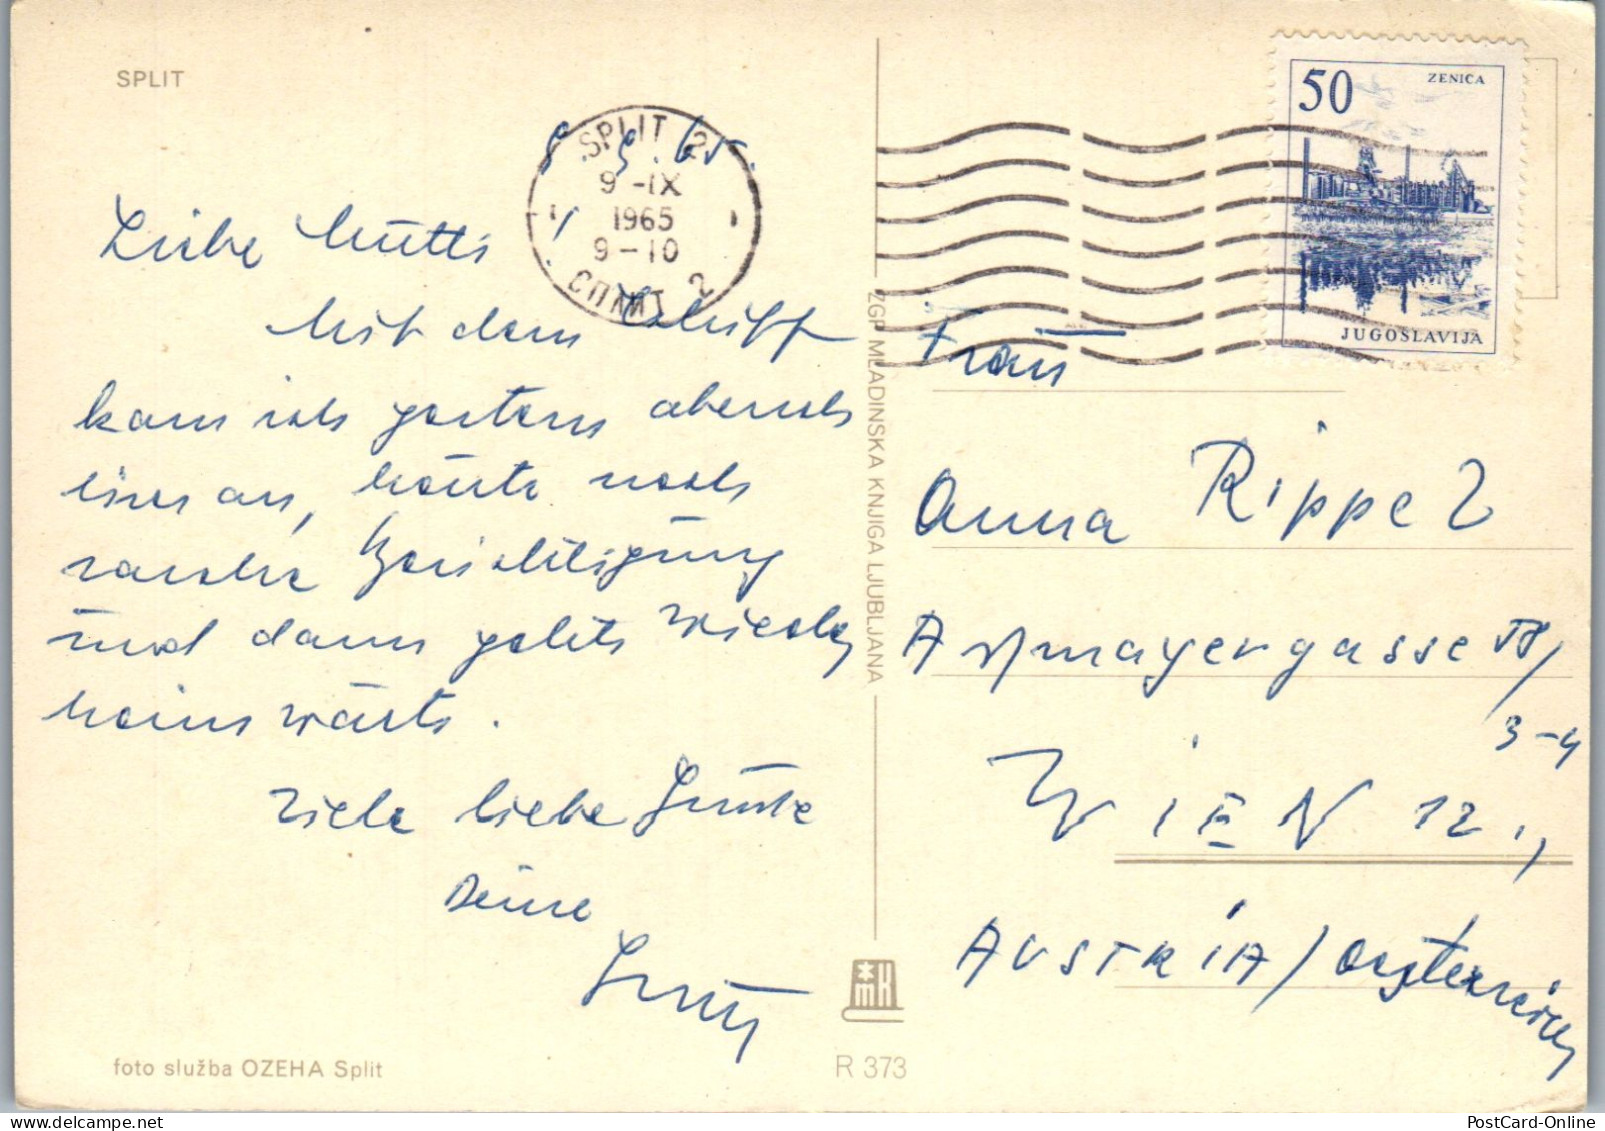 SPLIT
8. 9. 65.
SPLIT 2
9 -IX
1965
9 - 10
СПЛИТ 2
50
ZENICA
JUGOSLAVIJA
Liebe Mutti!
Mit dem Schiff
kam ich gestern abends
hier an, heute noch
rasche Besichtigung
und dann gehts wieder
heimwärts.
Viele liebe Grüße
Deine
ZGP MLADINSKA KNJIGA LJUBLJANA
Frau
Anna Rippel
Aßmayergasse 58/
3-4
WIEN 12.,
AUSTRIA / Oesterreich
mK
foto služba OZEHA Split
R 373
PostCard-Online